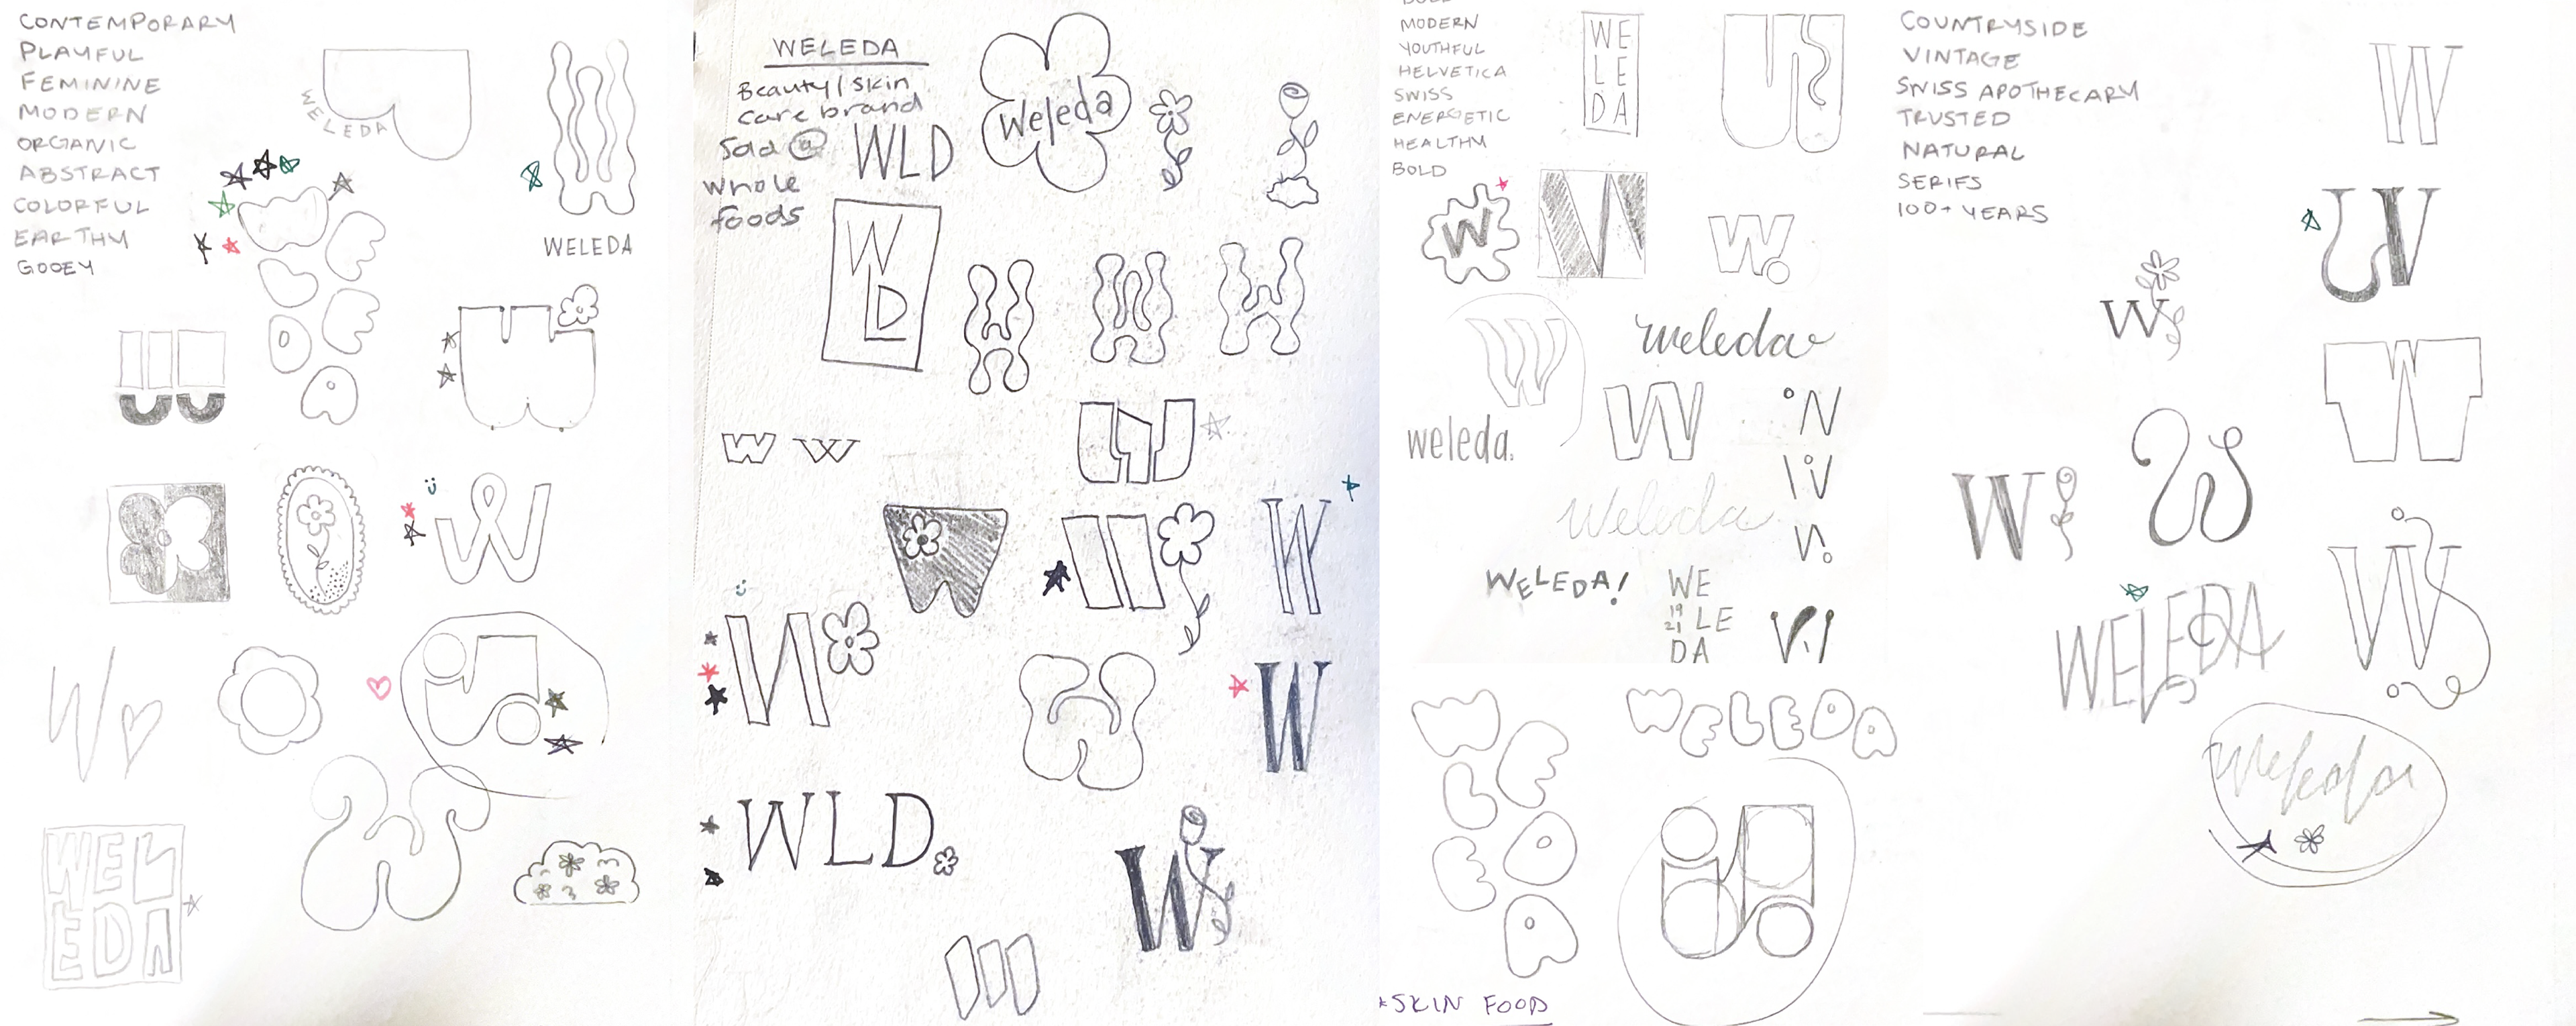 CONTEMPORARY
PLAYFUL
FEMININE
MODERN
ORGANIC
ABSTRACT
COLORFUL
EARTHY
GOOEY
WELEDA
WELEDA
WELEDA
W
W
W
WELEDA
W
WELEDA
Beauty/skin
care brand
Sold @
whole
foods
WLD
Weleda
WLD
W
W
W
W
W
W
W
W
W
WLD.
W
MODERN
YOUTHFUL
HELVETICA
SWISS
ENERGETIC
HEALTHY
BOLD
WE
LE
DA
W
W
W
weleda
weleda.
W
Weleda
WELEDA!
WE
19
21 LE
DA
WELEDA
WELEDA
*SKIN FOOD
COUNTRYSIDE
VINTAGE
SWISS APOTHECARY
TRUSTED
NATURAL
SERIFS
100+ YEARS
W
W
W
W
W
W
W
WELEDA
Weleda